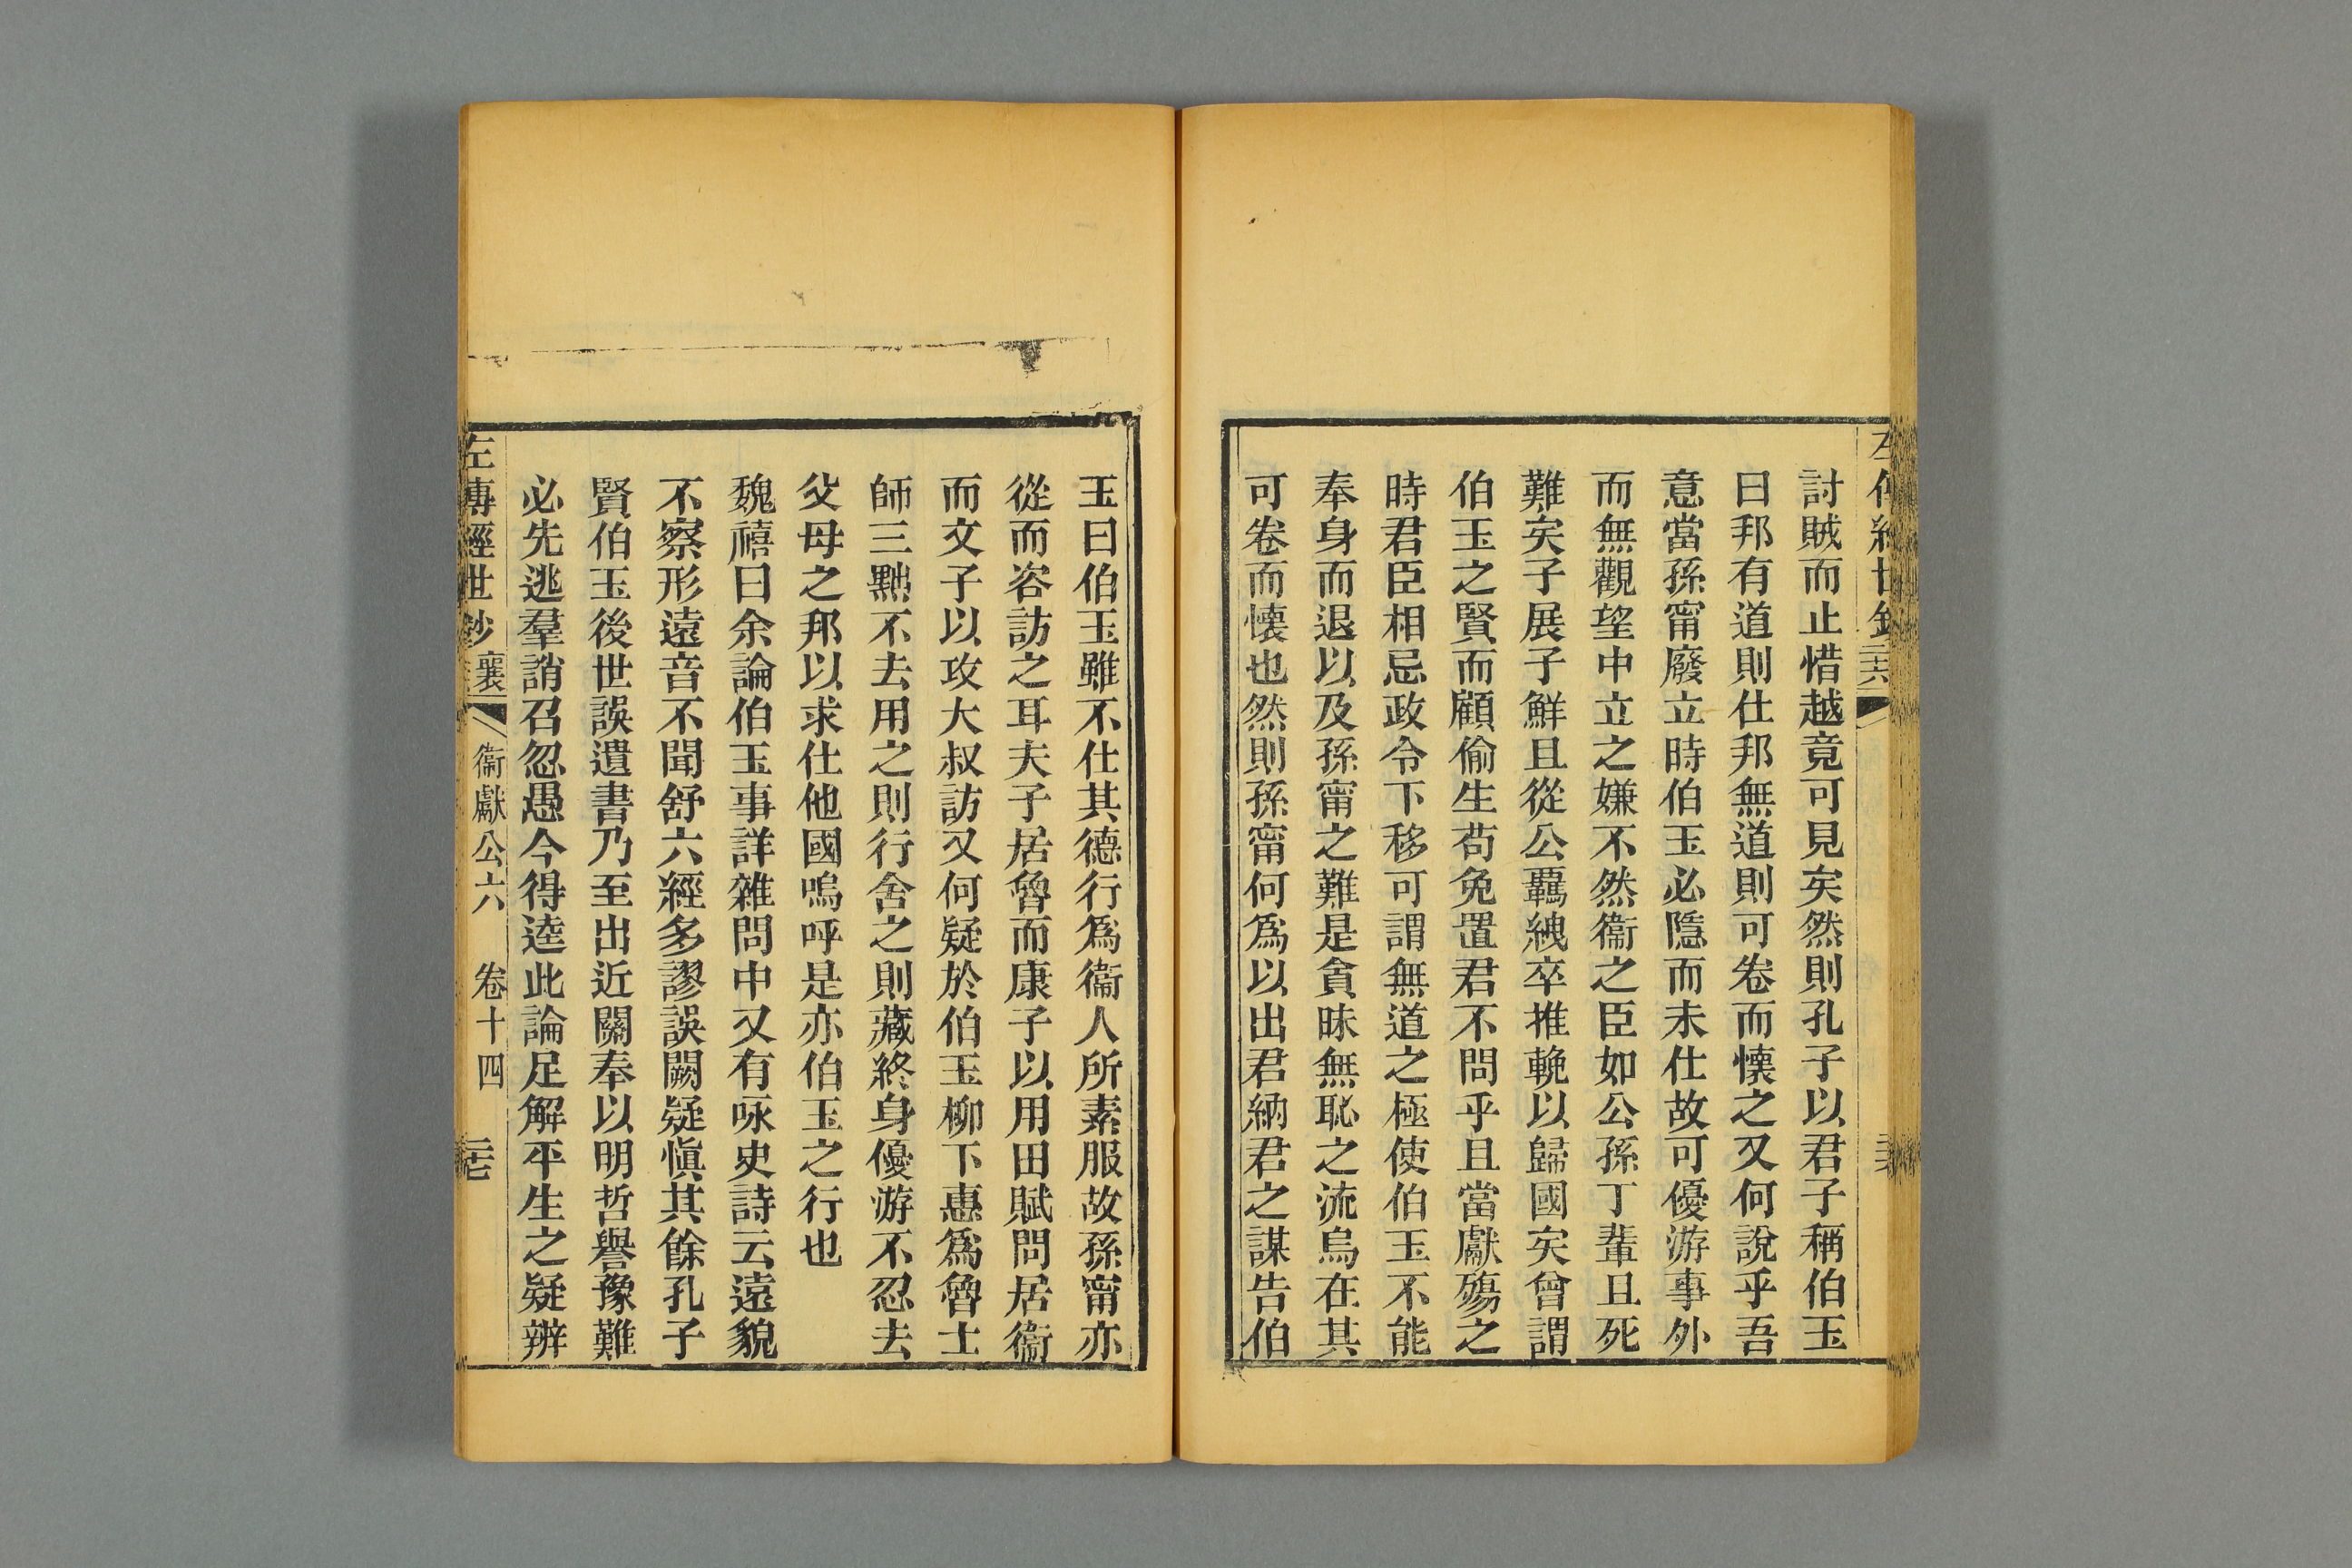 討賊而止惜越竟可見矣然則孔子以君子稱伯玉
曰邦有道則仕邦無道則可卷而懷之又何說乎吾
意當孫甯廢立時伯玉必隱而未仕故可優游事外
而無觀望中立之嫌不然衞之臣如公孫丁輩且死
難矣子展子鮮且從公羈紲卒推輓以歸國矣曾謂
伯玉之賢而顧偷生苟免置君不問乎且當獻殤之
時君臣相忌政令下移可謂無道之極使伯玉不能
奉身而退以及孫甯之難是貪昧無恥之流烏在其
可卷而懷也然則孫甯何爲以出君納君之謀告伯
玉曰伯玉雖不仕其德行爲衞人所素服故孫甯亦
從而咨訪之耳夫子居魯而康子以用田賦問居衞
而文子以攻大叔訪又何疑於伯玉柳下惠爲魯士
師三黜不去用之則行舍之則藏終身優游不忍去
父母之邦以求仕他國嗚呼是亦伯玉之行也
魏禧曰余論伯玉事詳雜問中又有咏史詩云遠貌
不察形遠音不聞舒六經多謬誤闕疑愼其餘孔子
賢伯玉後世誤遺書乃至出近關奉以明哲譽豫難
必先逃羣誚召忽愚今得逵此論足解平生之疑辨
左傳經世鈔 襄 衞獻公六 卷十四